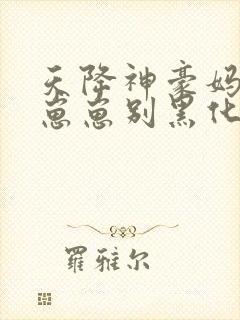 天降神豪妈
崽崽别黑化
羅雅尔